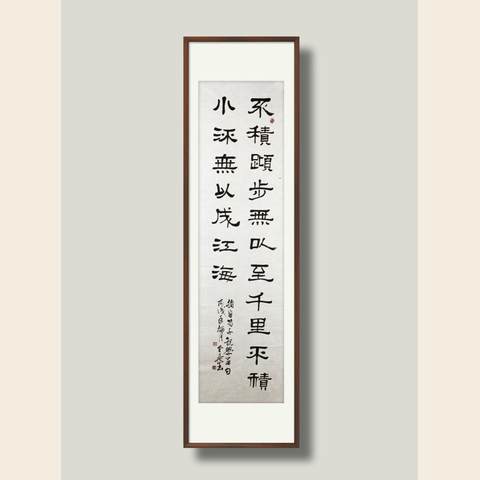 不積蹞步無以至千里不積
小流無以成江海
荀子 學 句